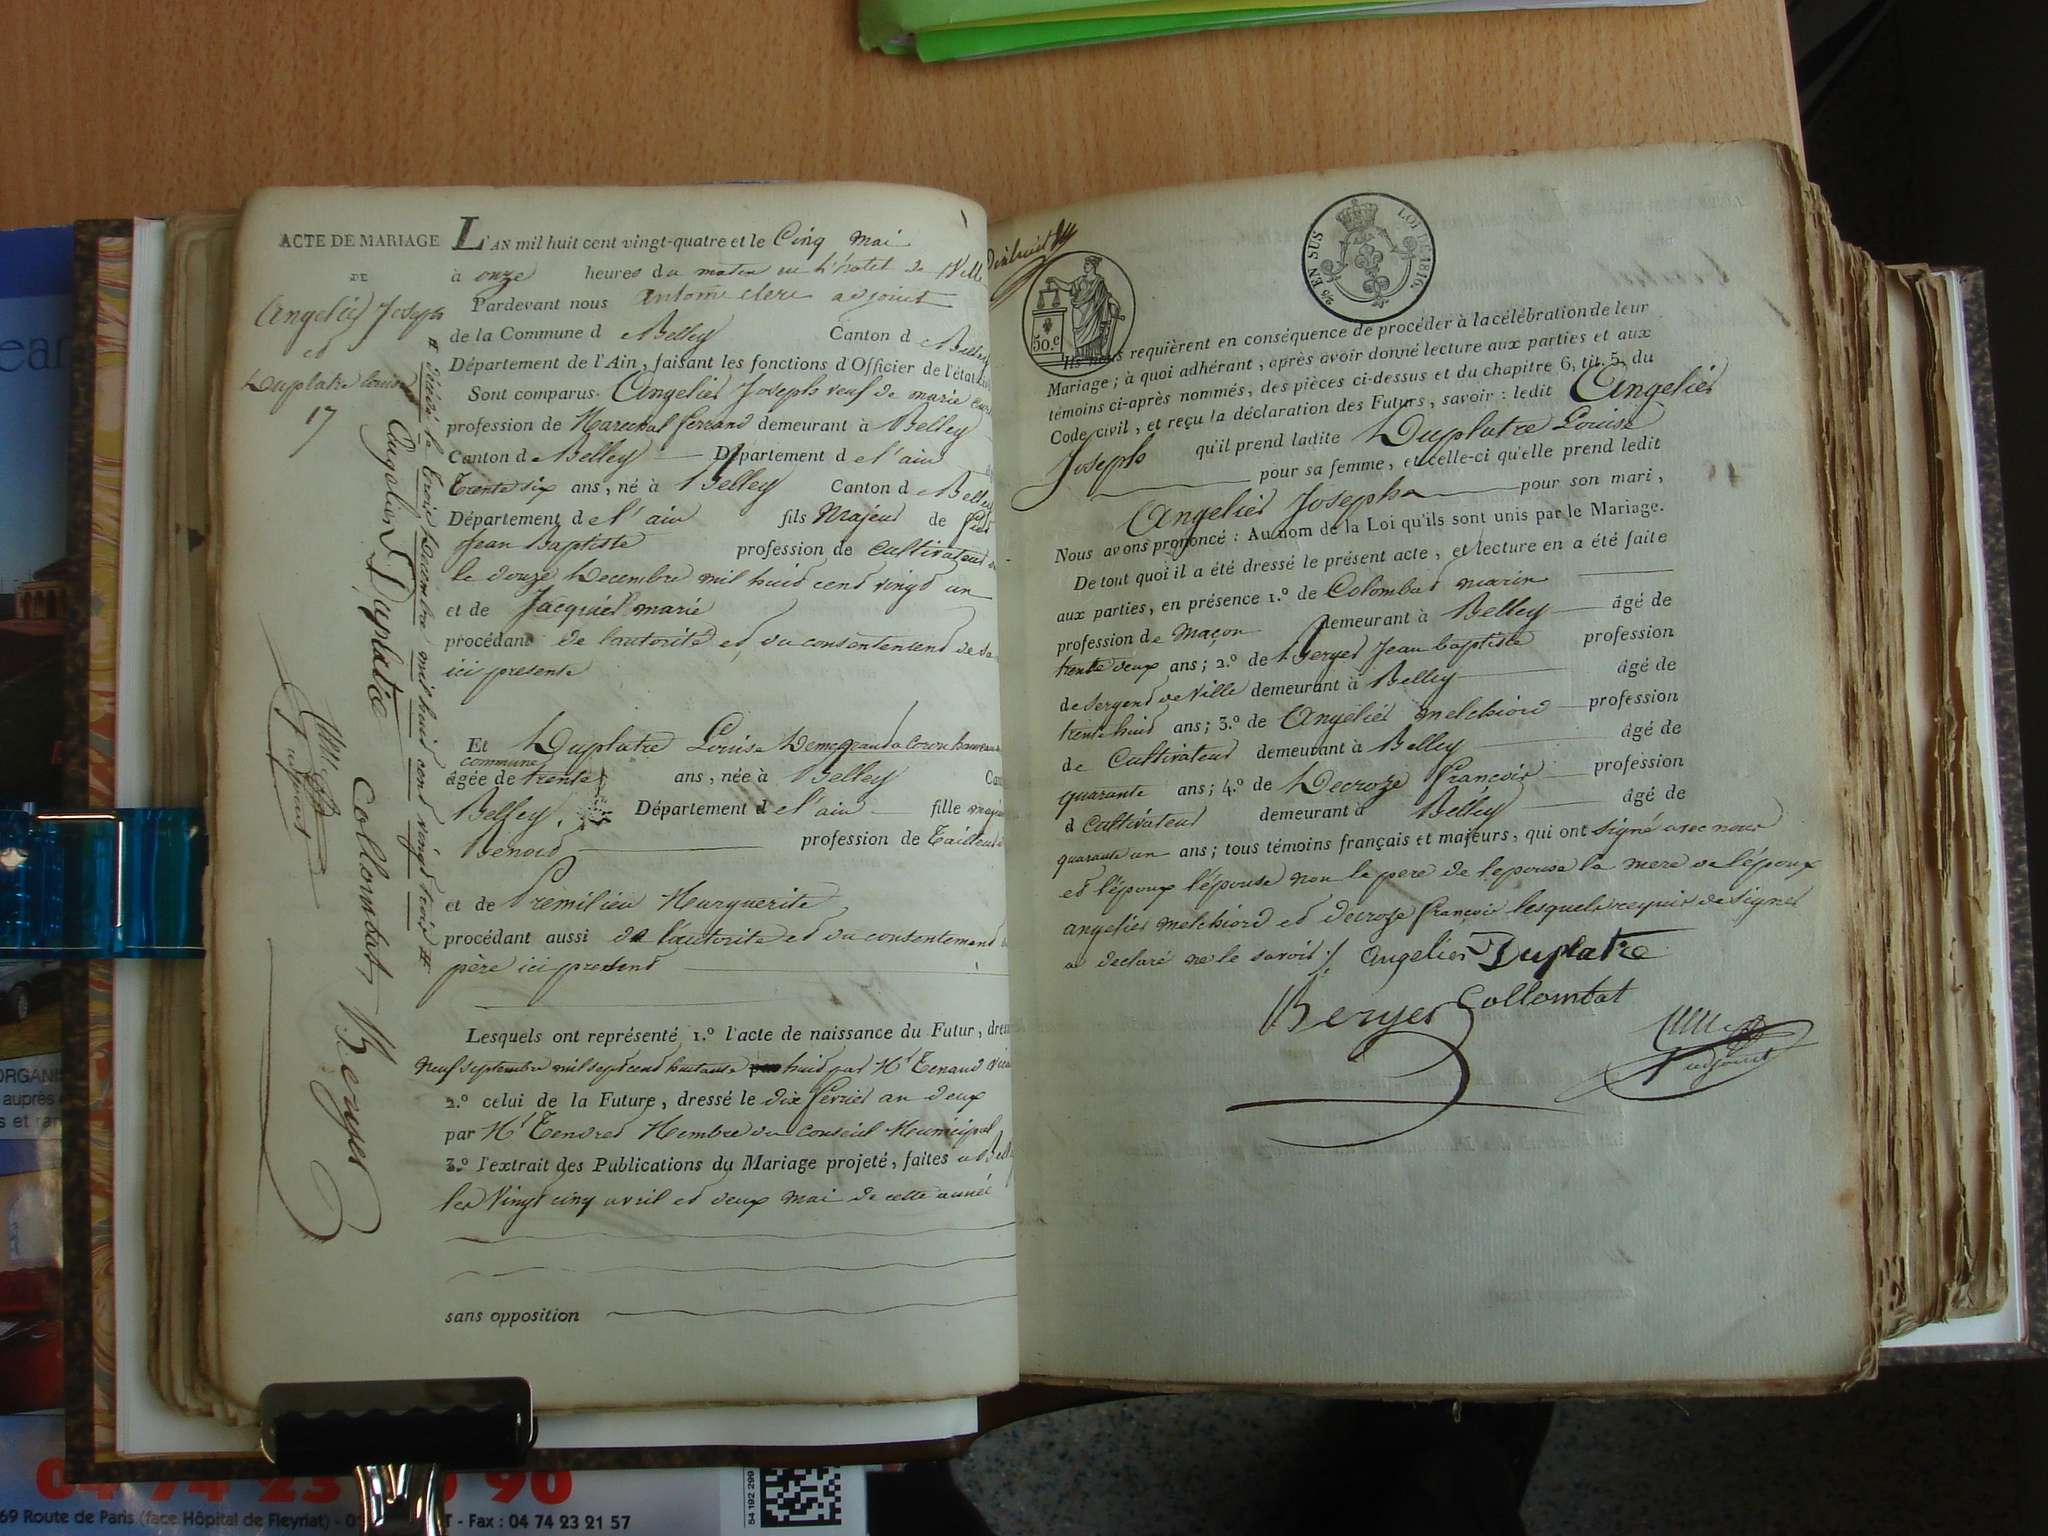 ACTE DE MARIAGE
DE
Angelier Joseph
et
Duplatre Louise
17
L'AN mil huit cent vingt-quatre et le Cinq mai
à onze heures du matin en l'hotel de Ville
Pardevant nous antoine clerc adjoint
de la Commune d Belley Canton d Belley
Département de l'Ain, faisant les fonctions d'Officier de l'état
Sont comparus Angelier Joseph veuf de marie
profession de Marechal ferrand demeurant à Belley
Canton d Belley Département d el'ain
trente six ans, né à Belley Canton d Belley
Département d el'ain fils Majeur de
Jean Baptiste profession de Cultivateur
le douze Decembre mil huid cend vingt un
et de Jacquier marie
procédant de l'autorité et du consentement de sa
ici presente
Et Duplatre Louise
commune
âgée de trente ans, née à Belley
Belley Département d el'ain fille
Benoid profession de Tailleur
et de Premilieu Marguerite
procédant aussi de l'autorité et du consentement
père ici present
Lesquels ont représenté 1.º l'acte de naissance du Futur,
Neuf septembre mil sept cend huitante huid par Mr Tenand
2.º celui de la Future, dressé le dix fevrier an deux
par Mr Tendret Membre du Conseil Municipal
3.º l'extrait des Publications du Mariage projeté, faites
les Vingt cinq avril et deux mai de cette année
sans opposition
# décédé le trois Decembre mil huid cend vingt trois #
Angelier L. Duplatre Collombat Berger
adjoint
2/6 EN SUS LOI DE 1816.
50.c
Ils nous requièrent en conséquence de procéder à la célébration de leur
Mariage; à quoi adhérant, après avoir donné lecture aux parties et aux
témoins ci-après nommés, des pièces ci-dessus et du chapitre 6, tit. 5, du
Code civil, et reçu la déclaration des Futurs, savoir: ledit Angelier
Joseph qu'il prend ladite Duplatre Louise
pour sa femme, et celle-ci qu'elle prend ledit
Angelier Joseph pour son mari,
Nous avons prononcé: Au nom de la Loi qu'ils sont unis par le Mariage.
De tout quoi il a été dressé le présent acte, et lecture en a été faite
aux parties, en présence 1.º de Colombat marin
profession de Maçon demeurant à Belley âgé de
trente deux ans; 2.º de Berger Jean baptiste profession
de Sergend de Ville demeurant à Belley âgé de
trente huid ans; 3.º de Angelier melchiord profession
de Cultivateur demeurant à Belley âgé de
quarante ans; 4.º de Decroze François profession
d Cultivateur demeurant à Belley âgé de
quarante un ans; tous témoins français et majeurs, qui ont signé avec nous
et l'époux l'épouse non le pere de l'epouse la mere de l'époux
angelier melchiord et decroze françois lesquels requis de signer
a declaré ne le savoir /. Angelier Duplatre
Berger Collombat
adjoint
04 74 23 90
69 Route de Paris (face Hôpital de Fleyriat) - 0
T - Fax : 04 74 23 21 57
54 192 299